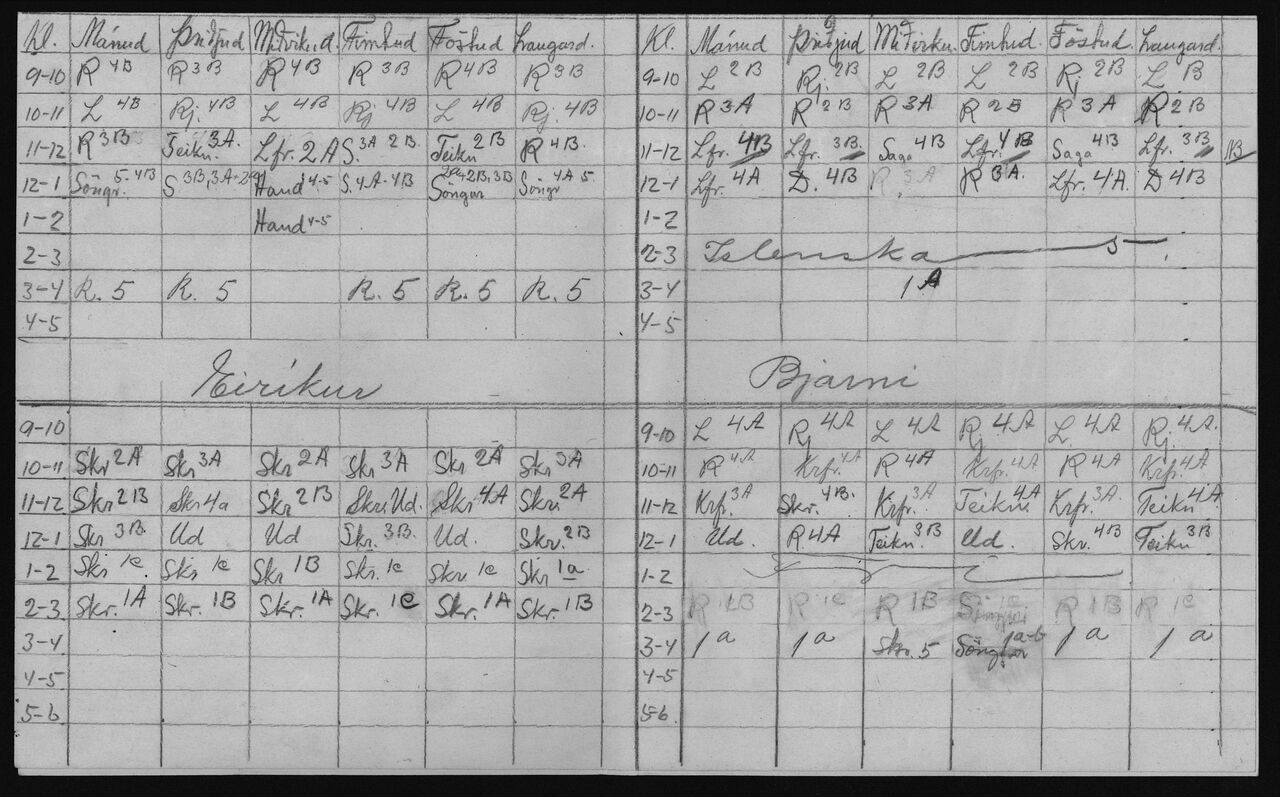 Kl. Mánud Þriðjud Miðvikud. Fimtud Föstud Laugard.
9-10 R 4B R 3B R 4B R 3B R 4B R 3B
10-11 L 4B Rj. 4B L 4B Rj 4B L 4B Rj. 4B
11-12 R 3B Teikn. 3A Lfr. 2A S. 3A 2B. Teikn 2B R 4B
12-1 Söngr. 5. 4B S 3B, 3A Hand 4-5 S. 4A-4B 2B, 3B Söngur Söngr 4A 5.
1-2 Hand 4-5
2-3
3-4 R. 5 R. 5 R. 5 R. 5 R. 5
4-5
Eiríkur
Kl. Mánud Þriðjud Miðviku. Fimtud. Föstud. Laugard.
9-10 L 2B Rj. 2B L 2B L 2B Rj 2B L B
10-11 R 3A R 2B R 3A R 2B R 3A R 2B
11-12 Lfr. 4B Lfr. 3B Saga 4B Lfr. 4B Saga 4B Lfr. 3B NB
12-1 Lfr. 4A D. 4B R 3A R 3A. Lfr. 4A. D 4B
1-2
2-3 Islenska 5
3-4 1A
4-5
Bjarni
9-10
10-11 Skr 2A Skr 3A Skr 2A Skr 3A Skr 2A Skr 3A
11-12 Skr 2B Skr 4a Skr 2B Skr. Ud. Skr 4A Skr. 2A
12-1 Skr 3B Ud Ud Skr. 3B. Ud. Skr. 2B
1-2 Skr 1c Skr 1c Skr 1B Skr. 1c Skr 1c Skr 1a
2-3 Skr. 1A Skr. 1B Skr. 1A Skr. 1C Skr. 1A Skr. 1B
3-4
4-5
5-6
9-10 L 4A Rj 4A L 4A Rj 4A L 4A Rj. 4A.
10-11 R 4A Krfr. 4A R 4A Krfr. 4A R 4A Krfr. 4A
11-12 Krfr. 3A Skr. 4B. Krfr. 3A Teikn. 4A Krfr. 3A. Teikn 4A
12-1 Ud. R. 4A Teikn. 3B Ud. Skr. 4B Teikn 3B
1-2
2-3 R 1B R 1C R 1B 1c R 1B R 1c
3-4 1a 1a Skr. 5 Söngur 1a-b 1a 1a
4-5
5-6